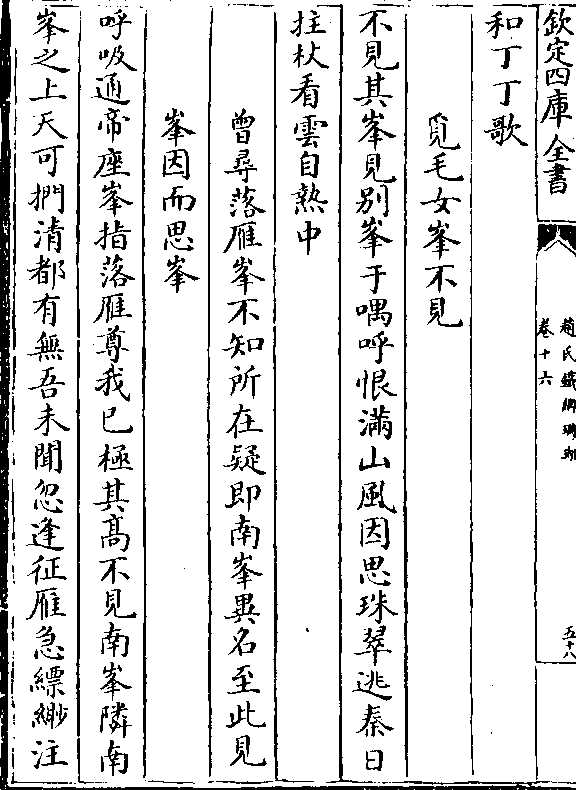 欽定四庫全書
趙氏鐵網珊瑚
卷十六
五十八
和丁丁歌
覓毛女峯不見
不見其峯見別峯于喁呼恨滿山風因思珠翠逃秦日
拄杖看雲自熱中
曾尋落雁峯不知所在疑即南峯異名至此見
峯因而思峯
呼吸通帝座峯指落雁尊我已極其髙不見南峯隣南
峯之上天可捫清都有無吾未聞忽逢征雁急縹緲注